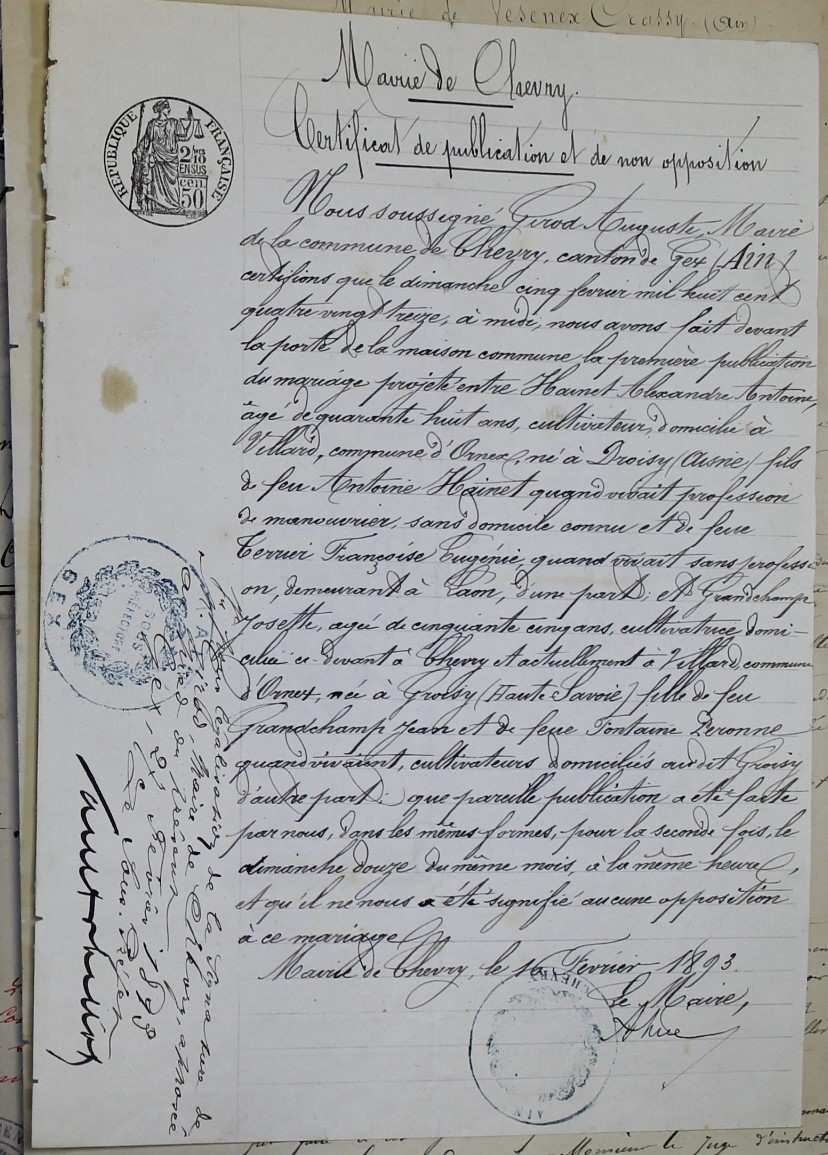 Mairie de Vesenex Crassy (Ain)
Mairie de Chevry.
Certificat de publication et de non opposition
RÉPUBLIQUE FRANÇAISE
2/10
EN SUS
50 cen
Nous soussigné Girod Auguste, Maire
de la commune de Chevry, canton de Gex (Ain)
certifions que le dimanche cinq février mil huit cent
quatre vingt treize, à midi, nous avons fait devant
la porte de la maison commune la première publication
du mariage projeté entre Hainet Alexandre Antoine,
âgé de quarante huit ans, cultivateur, domicilié à
Villard, commune d'Ornex, né à Droisy (Aisne) fils
de feu Antoine Hainet quand vivait profession
de manouvrier, sans domicile connu et de feue
Terrier Françoise Eugénie, quand vivait sans professi-
on, demeurant à Laon, d'une part; et Grandchamp
Josefte, agée de cinquante cinq ans, cultivatrice, domi-
ciliée ci-devant à Chevry et actuellement à Villard, commune
d'Ornex, née à Groisy (Haute Savoie) fille de feu
Grandchamp Jean et de feue Fontaine Peronne
quand vivaient, cultivateurs domiciliés au dit Groisy
d'autre part: que pareille publication a été faite
par nous, dans les mêmes formes, pour la seconde fois, le
dimanche douze du même mois, à la même heure,
et qu'il ne nous a été signifié aucune opposition
à ce mariage
Mairie de Chevry, le 16 Février 1893.
Le Maire,
CHEVRY
AIN
GEX
SOUS
légalisation de la signature de
M. Girod, Maire de Chevry, apposée
Gex, Février 1893
Le Sous-Préfet
Monsieur le Juge d'instruct